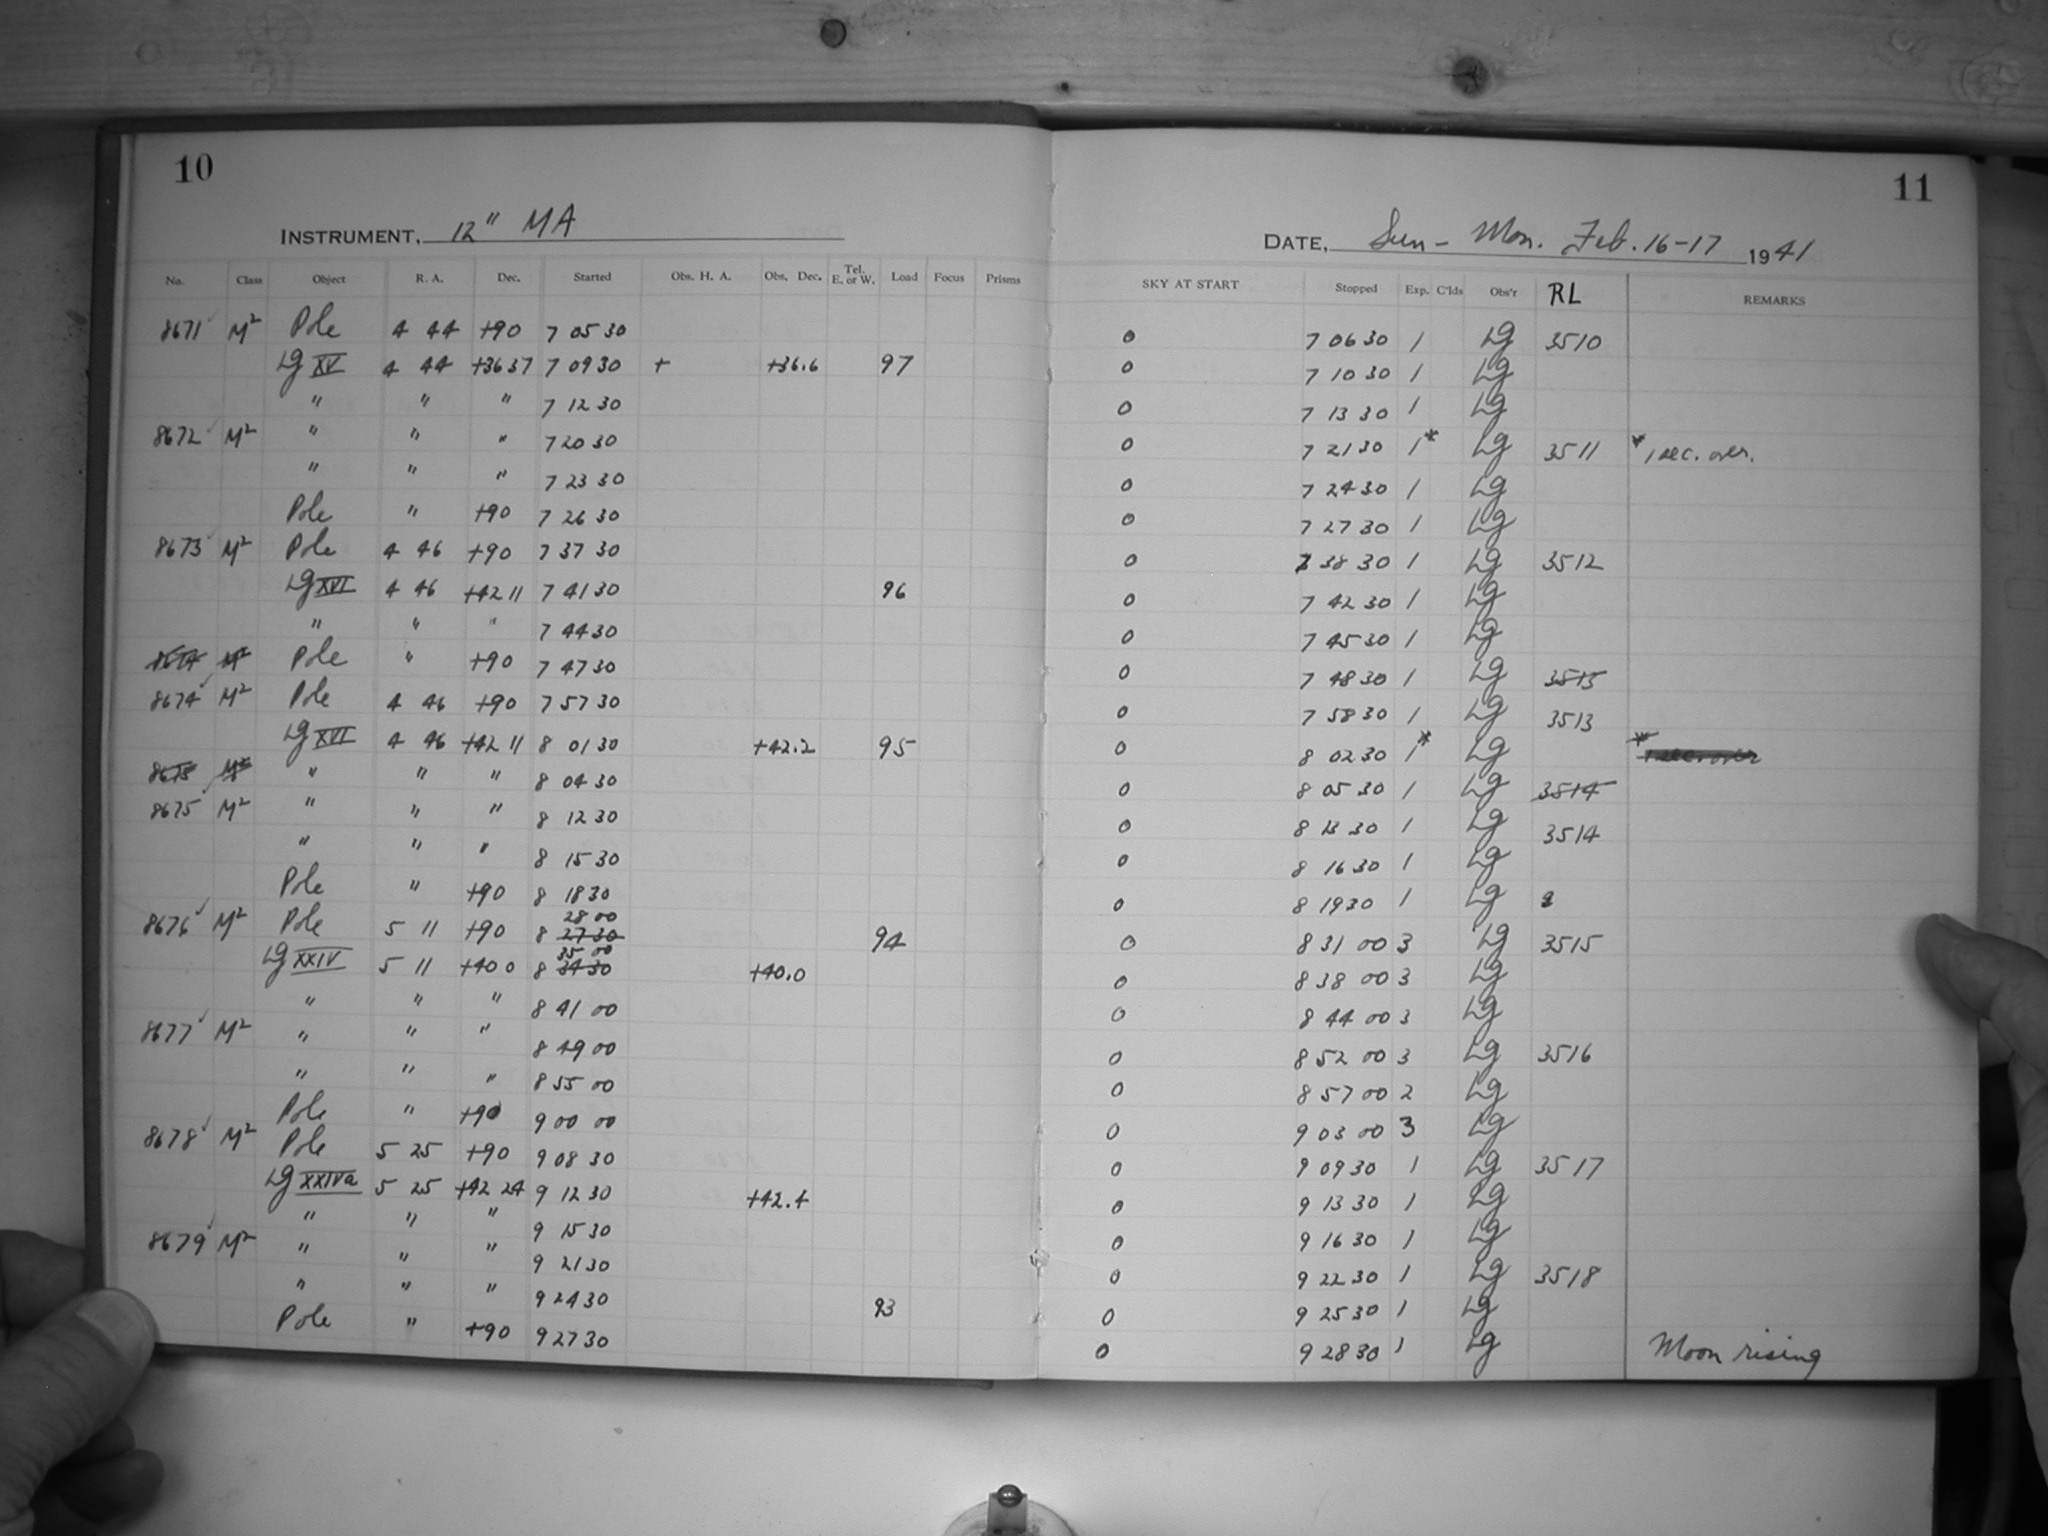 10
INSTRUMENT, 12" MA
No. Class Object R. A. Dec. Started Obs. H. A. Obs. Dec. Tel. E. or W. Load Focus Prisms
8671 M² Pole 4 44 +90 7 05 30
Lg XV 4 44 +36 37 7 09 30 + +36.6 97
" " " 7 12 30
8672 M² " " " 7 20 30
" " " 7 23 30
Pole " +90 7 26 30
8673 M² Pole 4 46 +90 7 37 30
Lg XVI 4 46 +42 11 7 41 30 96
" " " 7 44 30
8674 M² Pole " +90 7 47 30
8674 M² Pole 4 46 +90 7 57 30
Lg XVI 4 46 +42 11 8 01 30 +42.2 95
8675 M² " " " 8 04 30
8675 M² " " " 8 12 30
" " " 8 15 30
Pole " +90 8 18 30
28 00
8676 M² Pole 5 11 +90 8 27 30 94
35 00
Lg XXIV 5 11 +40 0 8 34 30 +40.0
" " " 8 41 00
8677 M² " " " 8 49 00
" " " 8 55 00
Pole " +90 9 00 00
8678 M² Pole 5 25 +90 9 08 30
Lg XXIVa 5 25 +42 24 9 12 30 +42.4
" " " 9 15 30
8679 M² " " " 9 21 30
" " " 9 24 30 93
Pole " +90 9 27 30
11
DATE, Sun - Mon. Feb. 16-17 1941
SKY AT START Stopped Exp. C'lds Obs'r RL REMARKS
0 7 06 30 1 Lg 3510
0 7 10 30 1 Lg
0 7 13 30 1 Lg
0 7 21 30 1* Lg 3511 * 1 sec. over.
0 7 24 30 1 Lg
0 7 27 30 1 Lg
0 7 38 30 1 Lg 3512
0 7 42 30 1 Lg
0 7 45 30 1 Lg
0 7 48 30 1 Lg 3513
0 7 58 30 1 Lg 3513
0 8 02 30 1* Lg * 1 sec. over
0 8 05 30 1 Lg 3514
0 8 13 30 1 Lg 3514
0 8 16 30 1 Lg
0 8 19 30 1 Lg
0 8 31 00 3 Lg 3515
0 8 38 00 3 Lg
0 8 44 00 3 Lg
0 8 52 00 3 Lg 3516
0 8 57 00 2 Lg
0 9 03 00 3 Lg
0 9 09 30 1 Lg 3517
0 9 13 30 1 Lg
0 9 16 30 1 Lg
0 9 22 30 1 Lg 3518
0 9 25 30 1 Lg
0 9 28 30 1 Lg Moon rising